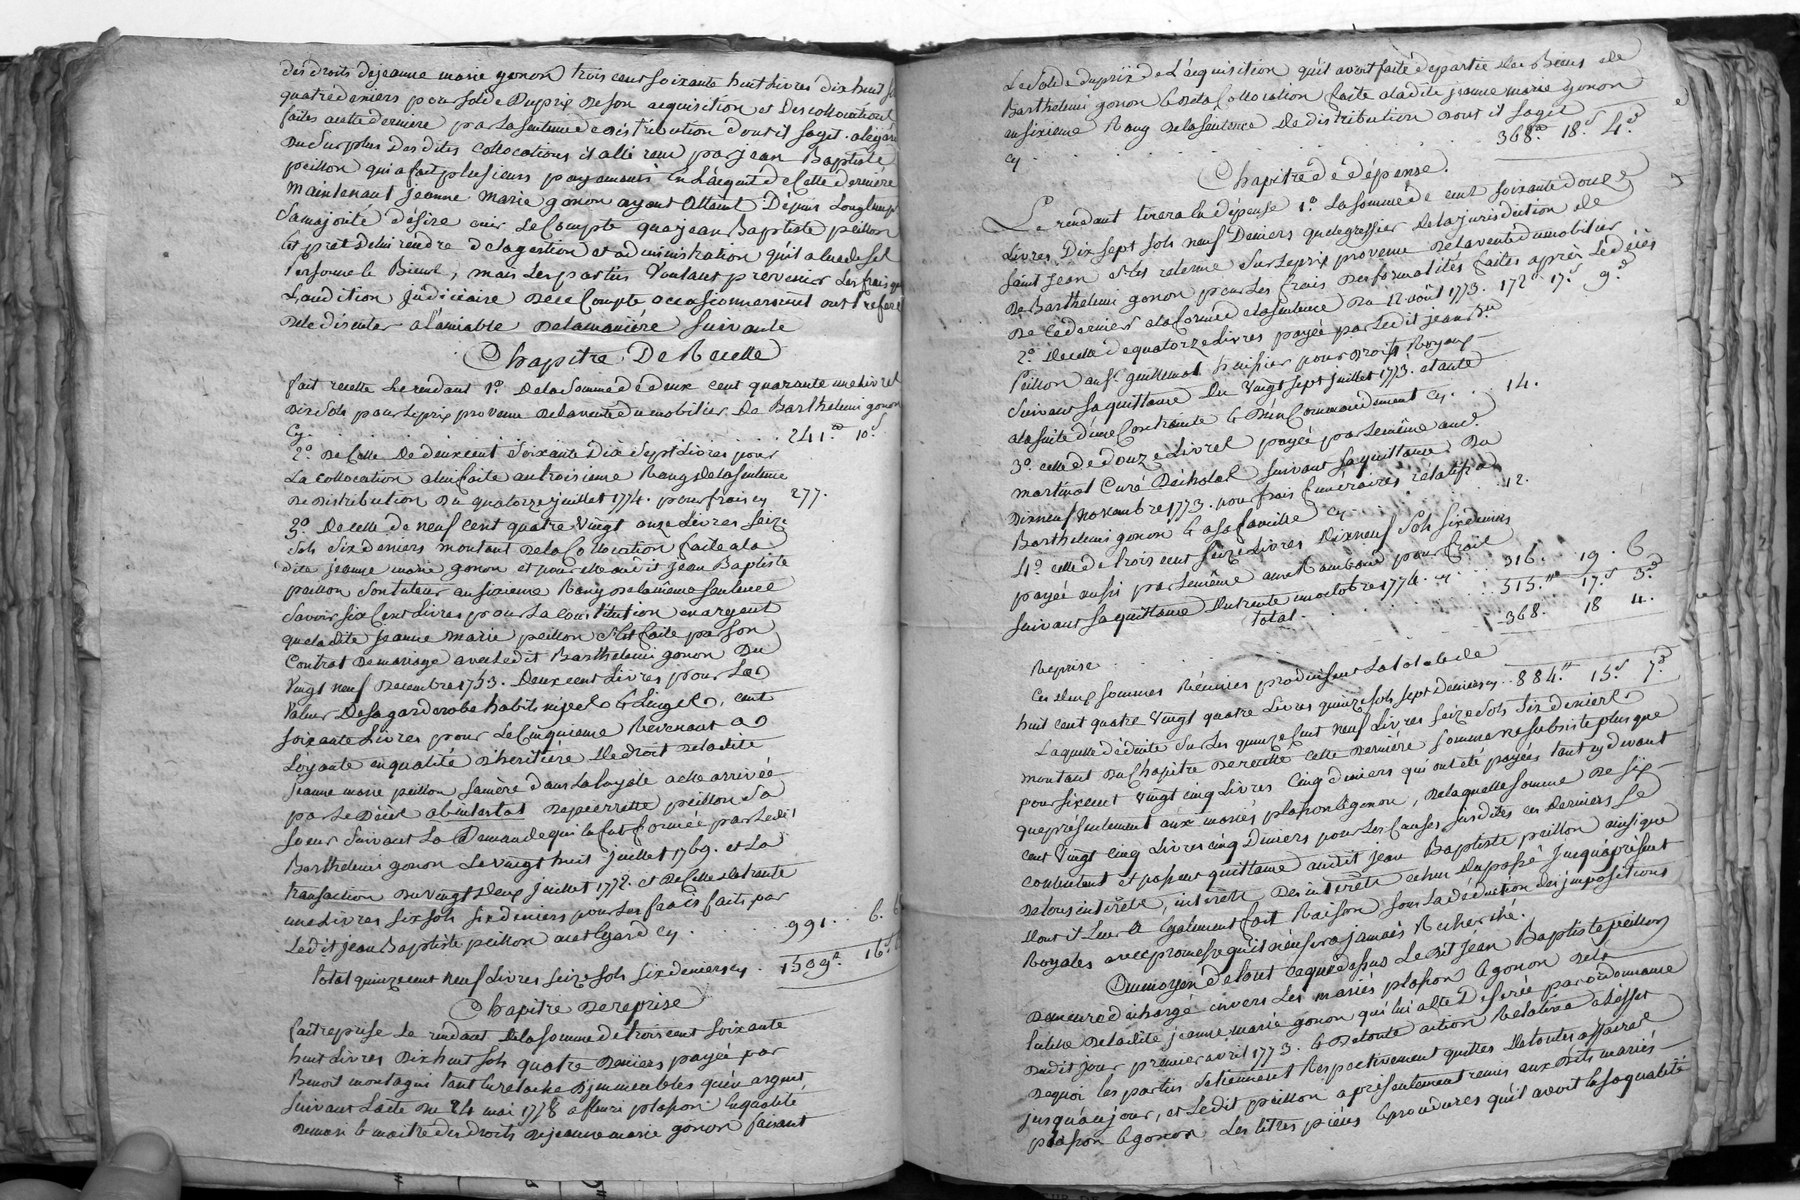 des droits de jeanne marie gonon trois cent soixante huit livres dix huit sols
quatre deniers pour solde du prix de son acquisition et des collocations
faites a cette derniere par la sentence de distribution dont il sagit. a légard
du surplus des dites collocations il a été reçu par jean Baptiste
peillon qui a fait plusieurs payements en l'acquit de cette derniere
Maintenant jeanne Marie gonon ayant atteint depuis longtemps
sa majorité désire ouir le Compte que jean Baptiste peillon
est prêt de lui rendre de la gestion et administration qu'il a eue de ses
personne et Biens, mais les parties voulant prévenir les frais que
l'audition judiciaire de ce Compte occasionneroient ont préféré
de le discuter a l'amiable de la manière suivante
Chapitre De Recette
fait recette le rendant 1º. de la somme de deux cent quarante une livres
dix sols pour le prix provenu de la vente du mobilier de Barthelemi gonon
Cy. 241.tt 10.s
2º. de Celle de deux cent soixante dix sept livres pour
la collocation a lui faite au troisieme Rang de la sentence
de distribution du quatorze juillet 1774. pour frais cy 277.
3º. De celle de neuf cent quatre vingt onze livres seize
sols six deniers montant de la Collocation faite a la
dite jeanne marie gonon et pour elle audit jean Baptiste
peillon son tuteur au sixieme Rang de la même sentence
savoir six Cent livres pour la constitution en argent
que la dite jeanne marie peillon s'est faite par son
Contrat de mariage avec ledit Barthelemi gonon du
vingt neuf Decembre 1753. Deux cent livres pour la
valeur de sa garderobe habits nipes et linges, cent
soixante livres pour le Cinquieme Revenant a
Loyante en qualité d'héritiere de droit de la dite
jeanne marie peillon sa mère dans la loyale échue arrivée
par le Décès abintestat de pierrette peillon sa
soeur suivant la Demande qui la fut formée par ledit
Barthelemi gonon le vingt huit juillet 1769. et la
transaction du vingt deux juillet 1772. et de Celle de trente
une livres six sols six deniers pour les frais faits par
ledit jean Baptiste peillon a cet égard cy. 991. 6. 6
total quinze cent neuf livres seize sols six deniers cy. 1509.tt 16.s 6
Chapitre de reprise
fait reprise le rendant de la somme de trois cent soixante
huit livres dix huit sols quatre deniers payée par
Benoit montagni tant en relache d'immeubles qu'en argent,
suivant l'acte du 24 mai 1778 a fleuri plasson en qualité
de mari et maitre des droits de jeanne marie gonon faisant
le solde du prix de l'acquisition qu'il avoit faite de partie des Biens de
Barthelemi gonon et de la Collocation faite a la dite jeanne marie gonon
au sixieme Rang de la sentence de distribution dont il sagit
cy 368.tt 18.s 4.d
Chapitre de dépense.
Le rendant tirera en dépense 1º. la somme de cent soixante douze
livres dix sept sols neuf Deniers que le greffier de la jurisdiction de
saint jean s'est retenue sur le prix provenu de la vente du mobilier
de Barthelemi gonon pour les frais des formalités faites après le décès
de ce dernier et a la sentence du 12 août 1773. 172.tt 17.s 9.d
2º. de celle de quatorze livres payée par ledit jean Bte
Peillon au Sr. guillemot huissier pour droits Royaux
suivant sa quittance du vingt sept juillet 1773. étante
a la suite d'une Contrainte et d'un Commandement cy. 14.
3º. celle de douze livres payée par le même au Sr.
martinot Curé suivant sa quittance du
Dix neuf Novembre 1773. pour frais funeraires relatifs a
Barthelemi gonon et a sa famille cy 12.
4º. celle de trois cent seize livres dix neuf sols six deniers
payée aussi par le même a me Rambaud pour frais
suivant sa quittance du trente un octobre 1774. cy 316. 19. 6
total. 515.tt 17.s 3.d
Reprise 368. 18 4.
Ces deux sommes Réunies produisent la totale de
huit cent quatre vingt quatre livres quinze sols sept deniers cy. 884.tt 15.s 7.d
Laquelle déduite sur les quinze cent neuf livres seize sols six deniers
montant du Chapitre de recette cette derniere somme ne subsiste plus que
pour six cent vingt cinq livres cinq deniers qui ont été payées tant cy devant
que présentement aux mariés plasson et gonon, de laquelle somme de six
cent vingt cinq livres cinq deniers pour les Causes susdites ces derniers se
contentent et passent quittance audit jean Baptiste peillon ainsi que
de tous intérêts, intérêts des intérêts echus du passé jusqu'à présent
dont il leur a également fait Raison sous la déduction des impositions
Royales avec promesse qu'il n'en sera jamais Recherché.
Au moyen de tout ce que dessus le dit jean Baptiste peillon
demeure déchargé envers les mariés plasson et gonon de la
tutelle de la dite jeanne marie gonon qui lui a été déférée par ordonnance
dudit jour premier avril 1773. et de toute action Relative a l'effet
de quoi les parties se tiennent Respectivement quittes de toutes affaires
jusqu'à ce jour, et ledit peillon a présentement remis aux dits mariés
plasson et gonon les titres pièces et procédures qu'il avoit en sa qualité